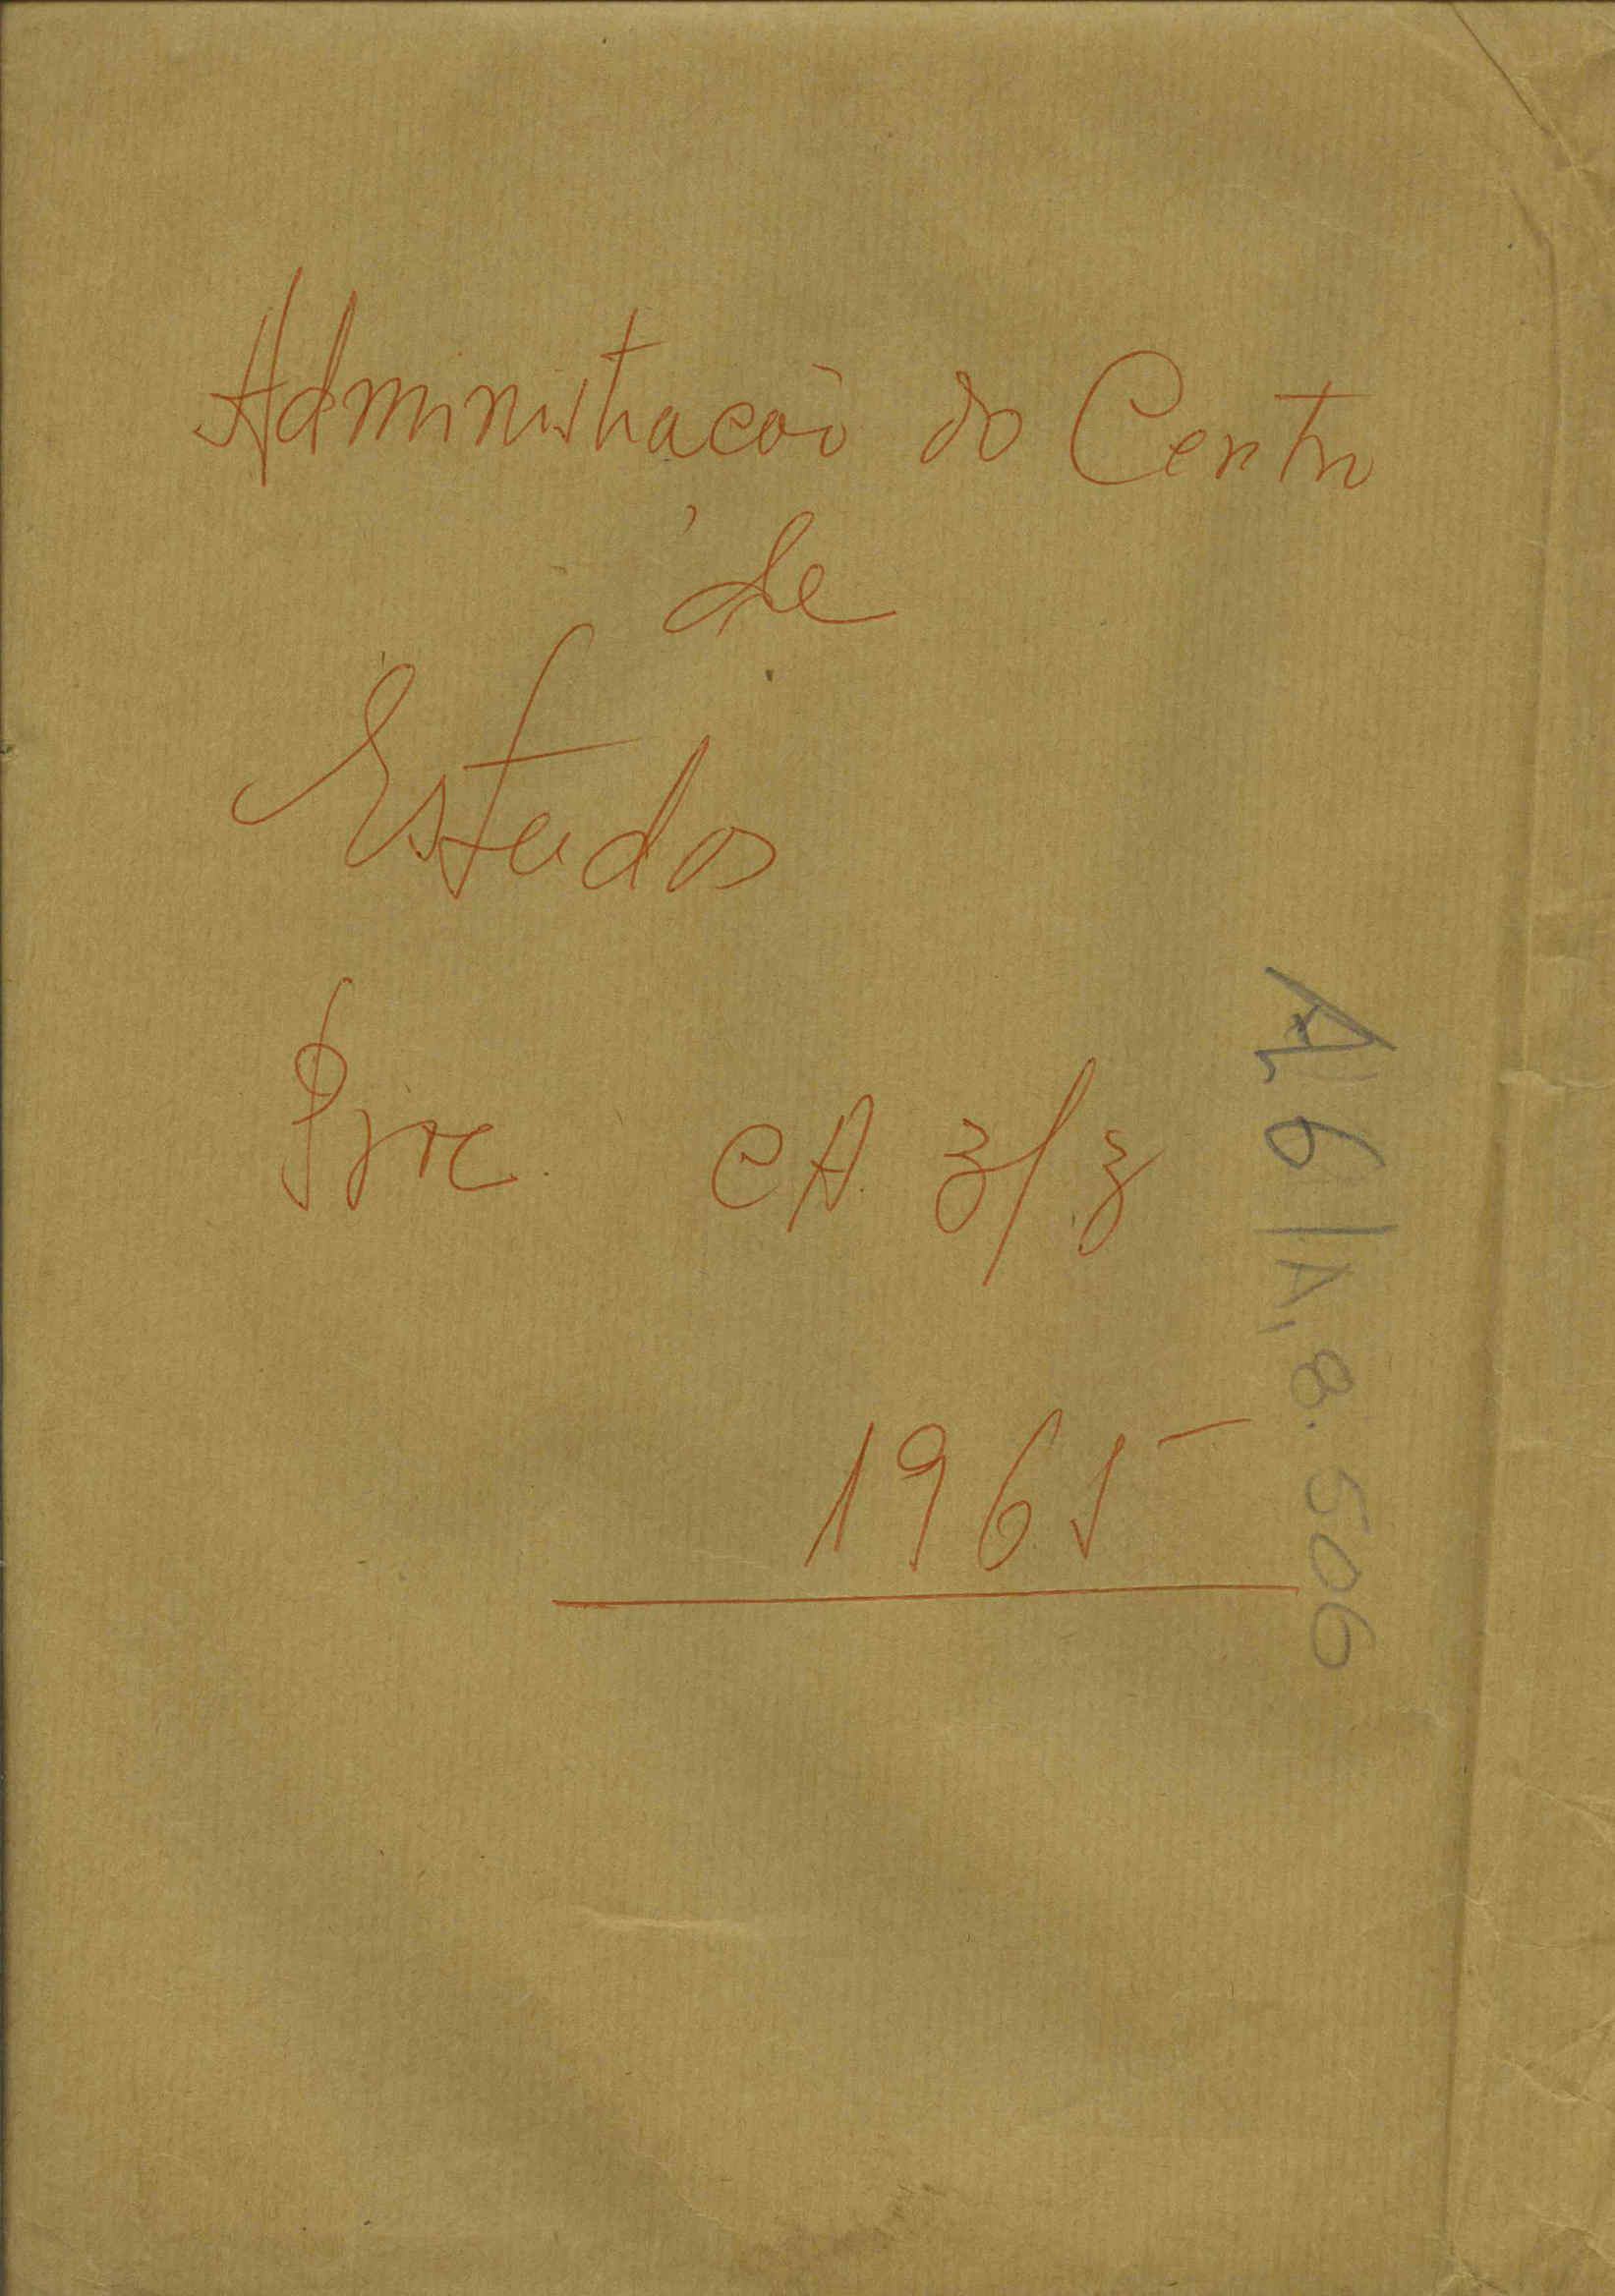 Administração do Centro
de
Estudos
Proc. CA 3/3
1965
A6/A, 8.506